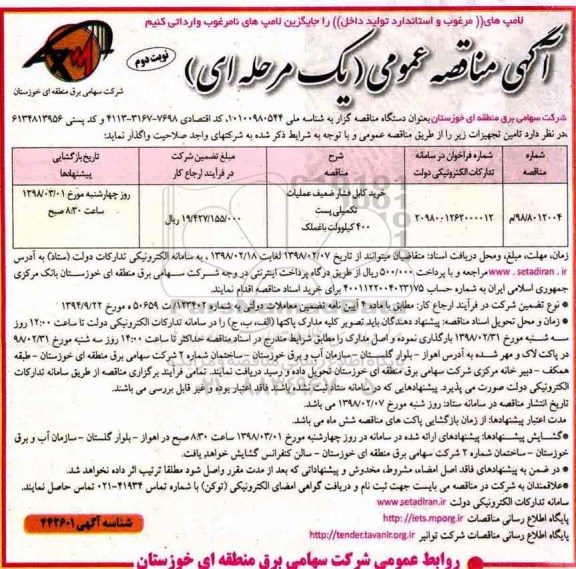 لامپ های(( مرغوب و استاندارد تولید داخل)) را جایگزین لامپ های نامرغوب وارداتی کنیم
آگهی مناقصه عمومی (یک مرحله ای)
نوبت دوم
شرکت سهامی برق منطقه ای خوزستان
شرکت سهامی برق منطقه ای خوزستان بعنوان دستگاه مناقصه گزار به شناسه ملی ۱۰۱۰۰۹۸۰۵۴۴، کد اقتصادی ۷۶۹۸-۳۱۶۷-۴۱۱۳ و کد پستی ۶۱۳۴۸۱۳۹۵۶
،در نظر دارد تامین تجهیزات زیر را از طریق مناقصه عمومی و با توجه به شرایط ذکر شده به شرکتهای واجد صلاحیت واگذار نماید:
شماره مناقصه | شماره فراخوان در سامانه تدارکات الکترونیکی دولت | شرح مناقصه | مبلغ تضمین شرکت در فرآیند ارجاع کار | تاریخ بازگشایی پیشنهادها
۹۸/۸۰۱۲۰۰۴/م | ۲۰۹۸۰۰۱۲۶۲۰۰۰۰۱۲ | خرید کابل فشار ضعیف عملیات تکمیلی پست ۴۰۰ کیلوولت باغملک | ۱۹/۴۲۷/۱۵۵/۰۰۰ ریال | روز چهارشنبه مورخ ۱۳۹۸/۰۳/۰۱ ساعت ۸:۳۰ صبح
زمان، مهلت، مبلغ، ومحل دریافت اسناد: متقاضیان میتوانند از تاریخ ۱۳۹۸/۰۲/۰۷ لغایت ۱۳۹۸/۰۲/۱۸ ، به سامانه الکترونیکی تدارکات دولت (ستاد) به آدرس
www . setadiran . ir مراجعه و با پرداخت ۵۰۰/۰۰۰ ریال از طریق درگاه پرداخت اینترنتی در وجه شرکت سهامی برق منطقه ای خوزستان بانک مرکزی
جمهوری اسلامی ایران به شماره حساب ۴۰۰۱۱۲۲۰۰۴۰۲۳۱۷۵ برای خرید اسناد مناقصه اقدام نمایند.
● نوع تضمین شرکت در فرآیند ارجاع کار: مطابق با ماده ۴ آیین نامه تضمین معاملات دولتی به شماره ۱۲۳۴۰۲/ت ۵۰۶۵۹ ه مورخ ۱۳۹۴/۹/۲۲
● زمان و محل تحویل اسناد مناقصه: پیشنهاد دهندگان باید تصویر کلیه مدارک پاکتها (الف، ب، ج) را در سامانه تدارکات الکترونیکی دولت تا ساعت ۱۲:۰۰ روز
سه شنبه مورخ ۱۳۹۸/۰۲/۳۱ بارگذاری نموده و اصل مدارک را مطابق شرایط مندرج در اسناد مناقصه حداکثر تا ساعت ۱۴:۰۰ روز سه شنبه مورخ ۹۸/۰۲/۳۱
در پاکت لاک و مهر شده به آدرس اهواز - بلوار گلستان - سازمان آب و برق خوزستان - ساختمان شماره ۲ شرکت سهامی برق منطقه ای خوزستان - طبقه
همکف - دبیر خانه مرکزی شرکت سهامی برق منطقه ای خوزستان تحویل داده و رسید دریافت نمایند. تمامی فرآیند برگزاری مناقصه از طریق سامانه تدارکات
الکترونیکی دولت صورت می پذیرد. پیشنهادهایی که در سامانه ستاد ثبت نشده باشند فاقد اعتبار بوده و غیر قابل بررسی می باشند.
تاریخ انتشار مناقصه در سامانه ستاد: روز شنبه مورخ ۱۳۹۸/۰۲/۰۷ می باشد.
مدت اعتبار پیشنهادها: از زمان بازگشایی پاکت های مناقصه شش ماه می باشد.
● گشایش پیشنهادها: پیشنهادهای ارائه شده در سامانه در روز چهارشنبه مورخ ۱۳۹۸/۰۳/۰۱ ساعت ۸:۳۰ صبح در اهواز - بلوار گلستان - سازمان آب و برق
خوزستان - ساختمان شماره ۲ شرکت سهامی برق منطقه ای خوزستان - سالن کنفرانس گشایش خواهد یافت.
● در ضمن به پیشنهادهای فاقد اصل امضاء، مشروط، مخدوش و پیشنهاداتی که بعد از مدت مقرر واصل شود مطلقا ترتیب اثر داده نخواهد شد.
● علاقمندان به شرکت در مناقصه می بایست جهت ثبت نام و دریافت گواهی امضای الکترونیکی (توکن) با شماره تماس ۴۱۹۳۴-۰۲۱ تماس حاصل نمایند.
سامانه تدارکات الکترونیکی دولت www.setadiran.ir
پایگاه اطلاع رسانی مناقصات http://iets.mporg.ir
پایگاه اطلاع رسانی مناقصات شرکت توانیر http://tender.tavanir.org.ir
شناسه آگهی ۴۴۲۶۰۱
روابط عمومی شرکت سهامی برق منطقه ای خوزستان